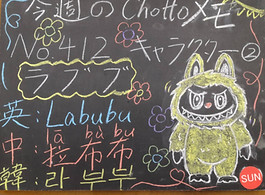 今週のChottoメモ
No.412 キャラクター②
ラブブ
英:Labubu
中:拉布布
lā bù bù
韓:라부부
SUN